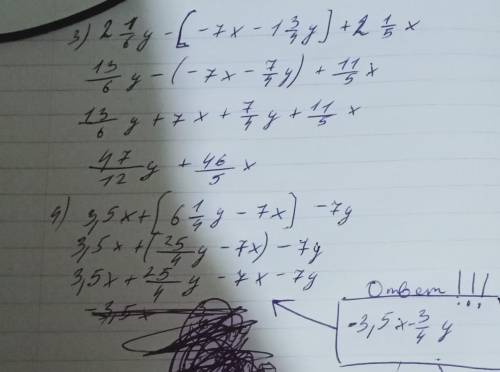 3) 2 1/6 y - [-7x - 1 3/4 y] + 2 1/5 x
13/6 y - (-7x - 7/4 y) + 11/5 x
13/6 y + 7x + 7/4 y + 11/5 x
47/12 y + 46/5 x
4) 3,5x + [6 1/4 y - 7x] - 7y
3,5x + (25/4 y - 7x) - 7y
3,5x + 25/4 y - 7x - 7y
-3,5x
Ответ!!!
-3,5x - 3/4 y